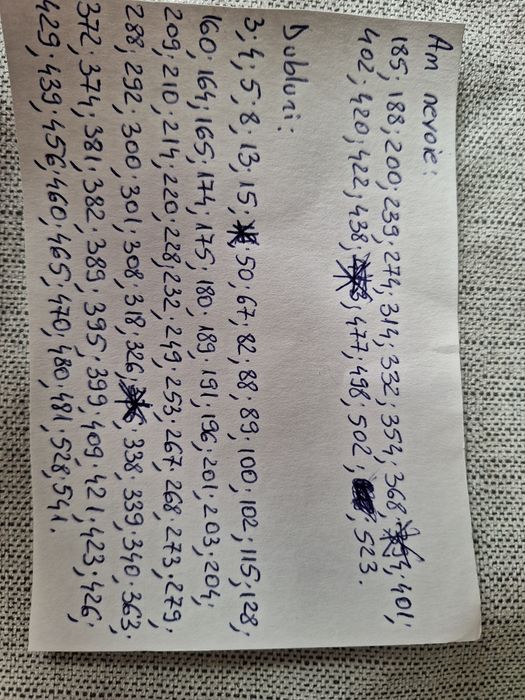 Am nevoie:
185; 188; 200; 239; 274; 314; 332; 354; 368; 401;
402; 420; 422; 438; 477; 498; 502; 523.
Dubluri:
3; 4; 5; 8; 13; 15; 50; 67; 82; 88; 89; 100; 102; 115; 128;
160; 164; 165; 174; 175; 180; 189; 191; 196; 201; 203; 204;
209; 210; 214; 220; 228; 232; 249; 253; 267; 268; 273; 279;
288; 292; 300; 301; 308; 318; 326; 338; 339; 340; 363;
372; 374; 381; 382; 389; 395; 399; 409; 421; 423; 426;
429; 439; 456; 460; 465; 470; 480; 481; 528; 541.